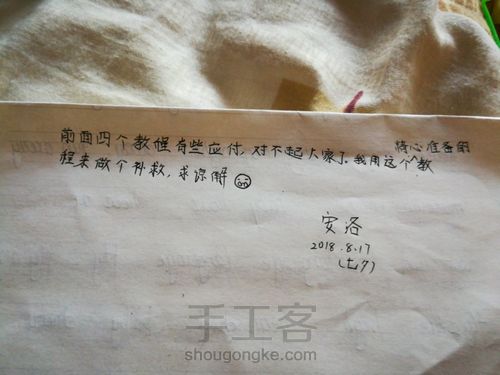 前面四个教程有些应付,对不起大家了,我用这个^精心准备的教
程来做个补救,求谅解
安洛
2018.8.17
(七夕)
手工客
shougongke.com